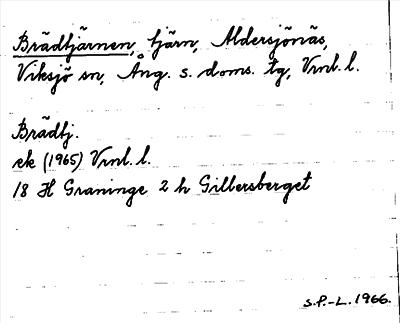 Brädtjärnen, tjärn, Aldersjönäs,
Viksjö sn, Ång. s. doms. tg, Vrnl. l.
Brädtj.
ek (1965) Vrnl. l.
18 H Graninge 2 h Gillersberget
S.P.-L. 1966.